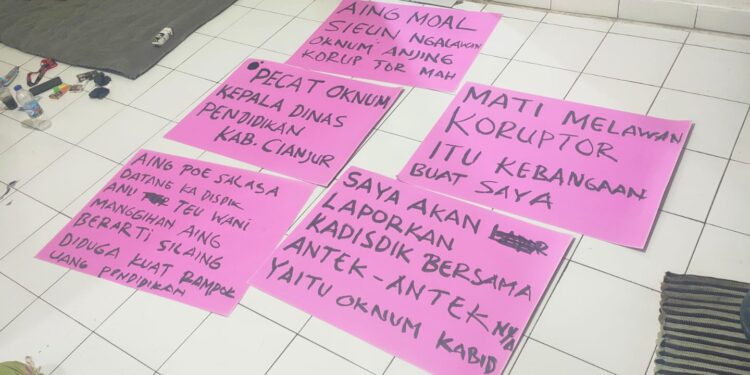 AING MOAL
SIEUN NGALAWAN
OKNUM ANJING
KORUPTOR MAH
PECAT OKNUM
KEPALA DINAS
PENDIDIKAN
KAB. CIANJUR
MATI MELAWAN
KORUPTOR
ITU KEBANGAAN
BUAT SAYA
AING POE SALASA
DATANG KA DISDIK
ANU TEU WANI
MANGGIHAN AING
BERARTI SILAING
DIDUGA KUAT RAMPOK
UANG PENDIDIKAN
SAYA AKAN
LAPORKAN
KADISDIK BERSAMA
ANTEK-ANTEK NYA
YAITU OKNUM KABID